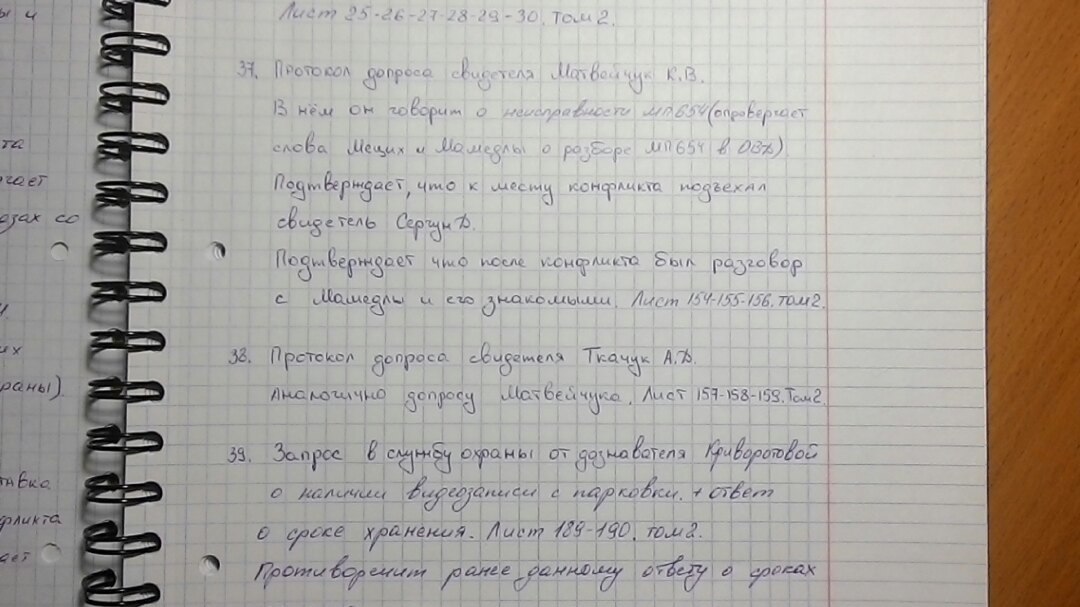 Лист 25-26-27-28-29-30. том 2.
37. Протокол допроса свидетеля Матвейчук К.В.
В нём он говорит о неисправности МП654 (опровергает
слова Мецих и Мамедлы о разборе МП654 в ОВД)
Подтверждает, что к месту конфликта подъехал
свидетель Сергун Д.
Подтверждает что после конфликта был разговор
с Мамедлы и его знакомыми. Лист 154-155-156. том 2.
38. Протокол допроса свидетеля Ткачук А.Д.
Аналогично допросу Матвейчука. Лист 157-158-159. Том 2
39. Запрос в службу охраны от дознавателя Криворотовой
о наличии видеозаписи с парковки. + ответ
о сроке хранения. Лист 189-190. том 2.
Противоречит ранее данному ответу о сроках